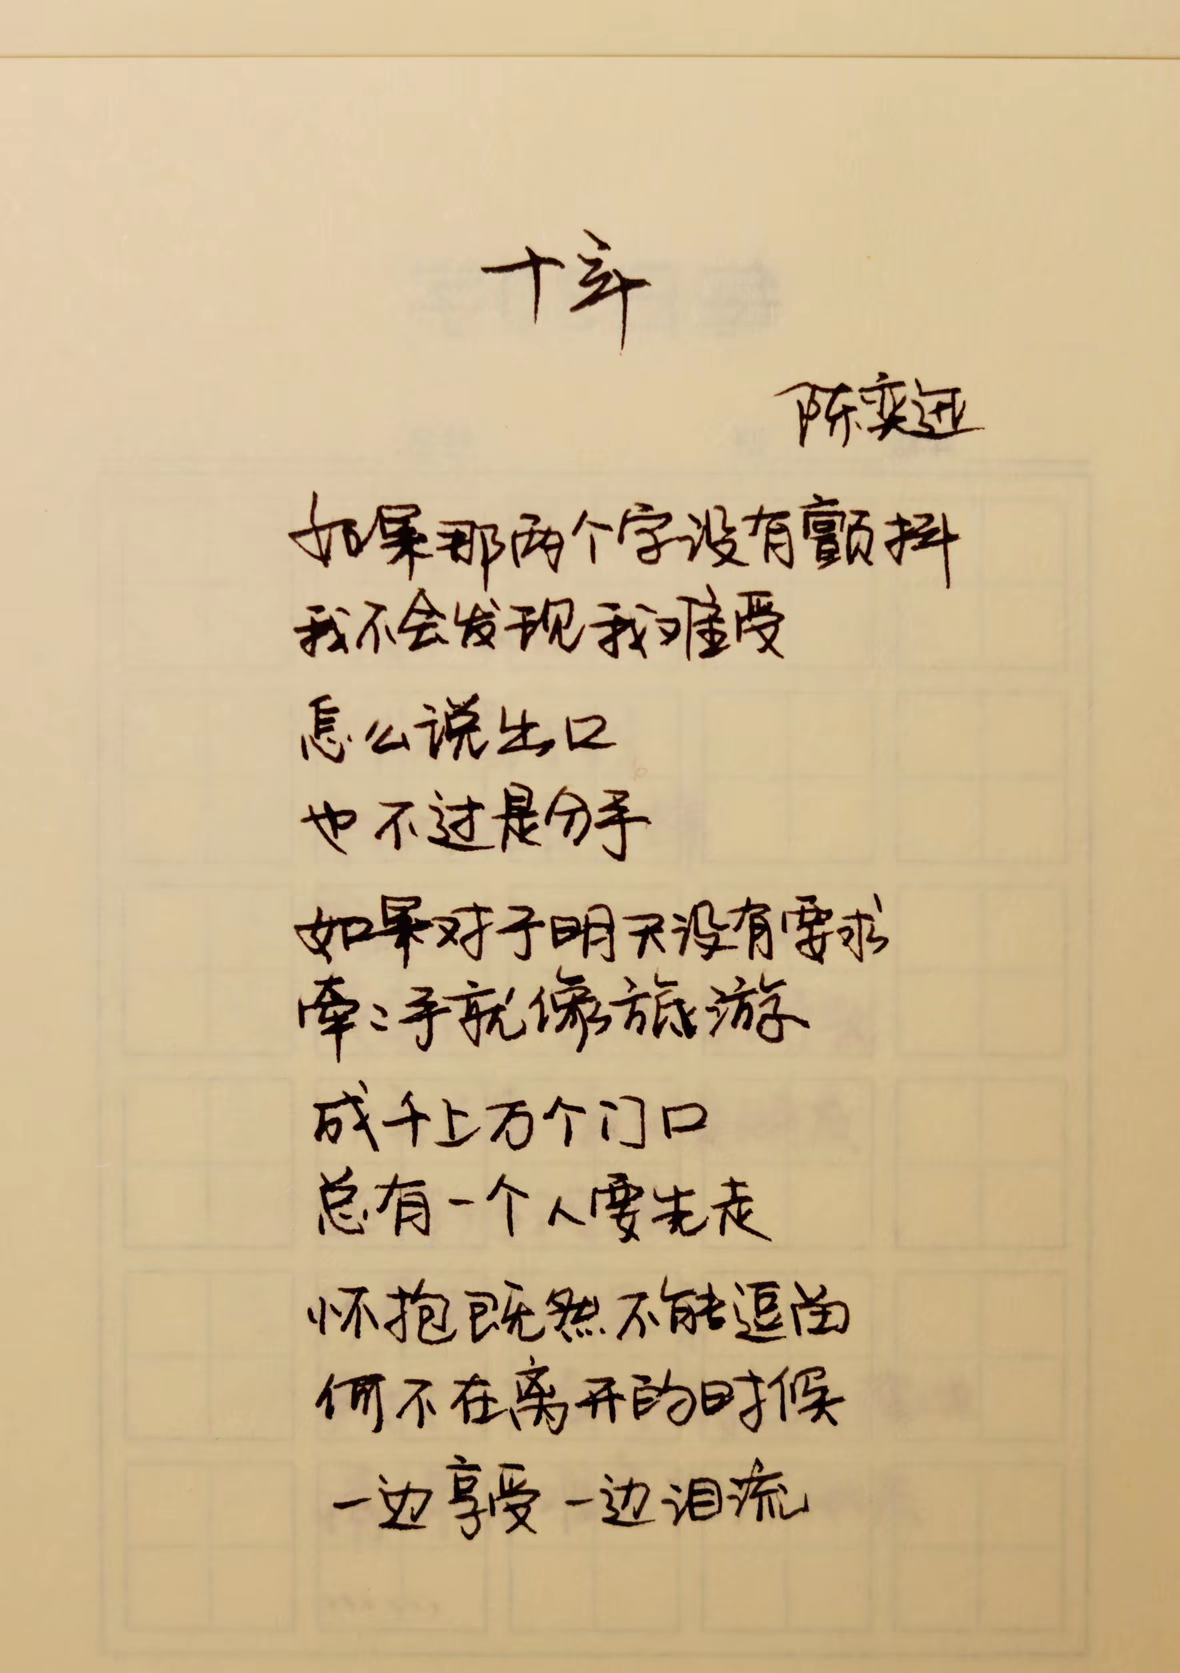 十年
陈奕迅
如果那两个字没有颤抖
我不会发现我难受
怎么说出口
也不过是分手
如果对于明天没有要求
牵牵手就像旅游
成千上万个门口
总有一个人要先走
怀抱既然不能逗留
何不在离开的时候
一边享受一边泪流